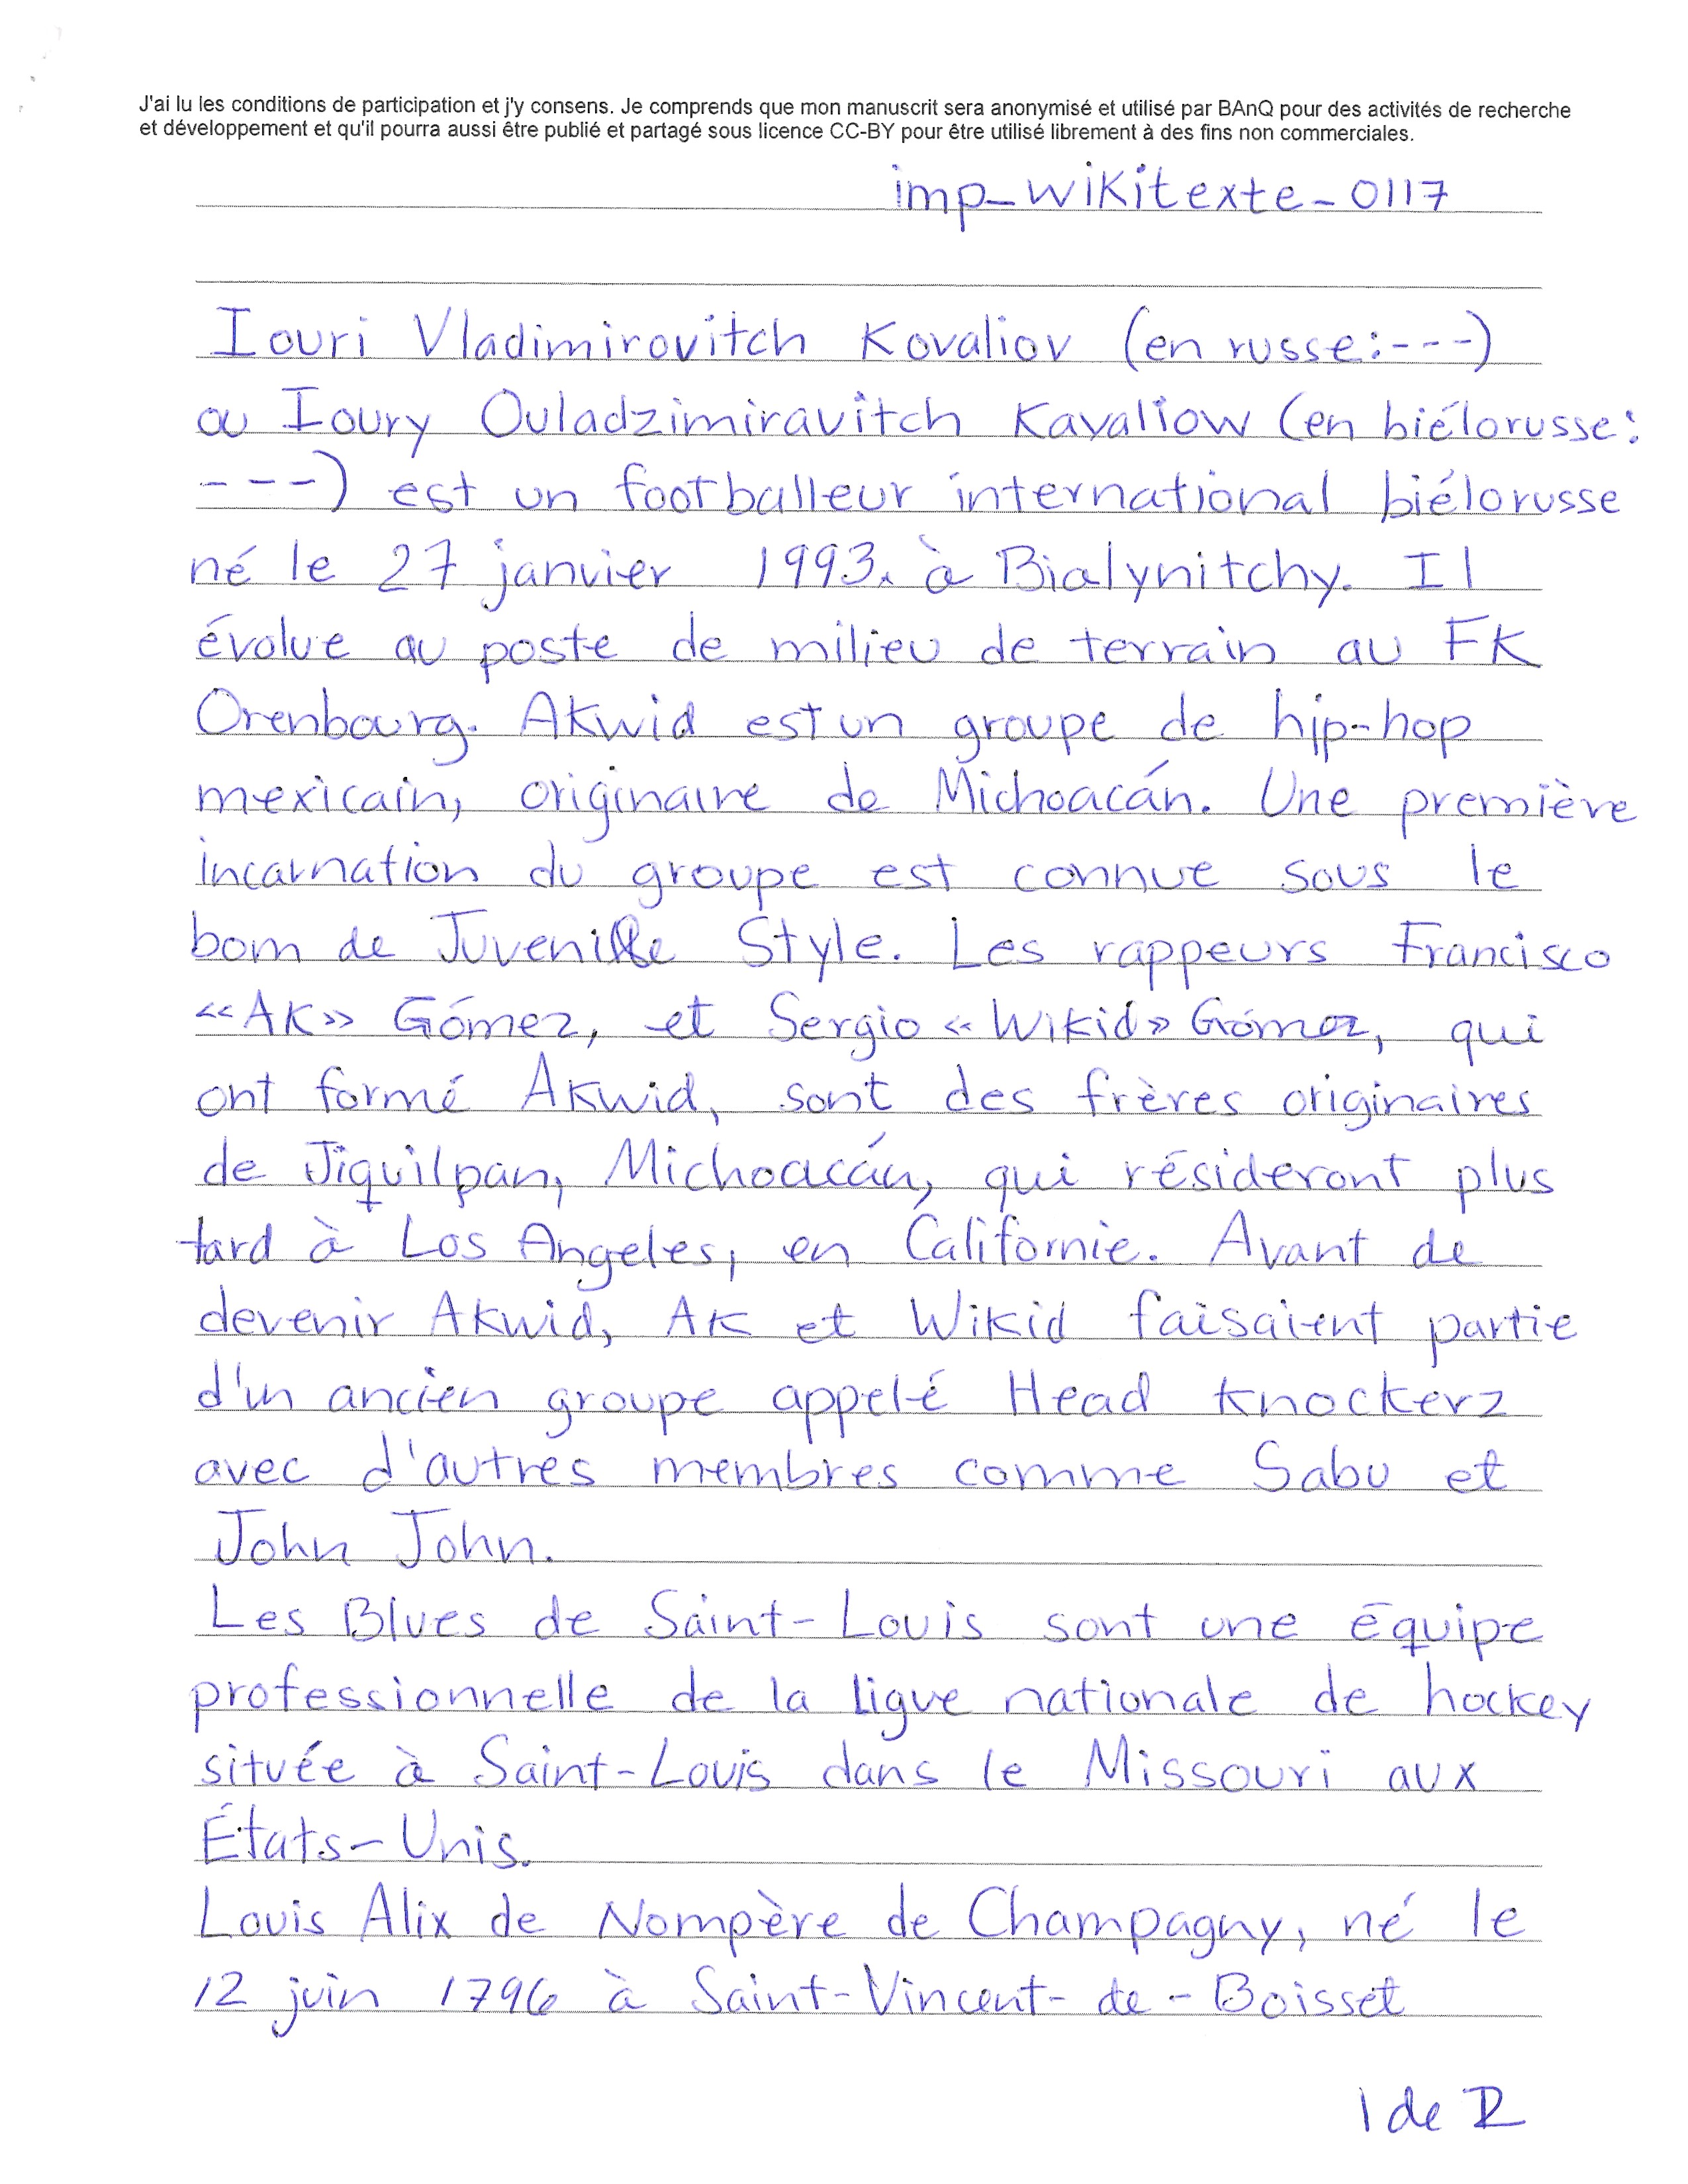 J'ai lu les conditions de participation et j'y consens. Je comprends que mon manuscrit sera anonymisé et utilisé par BAnQ pour des activités de recherche
et développement et qu'il pourra aussi être publié et partagé sous licence CC-BY pour être utilisé librement à des fins non commerciales.
imp_wikitexte_0117
Iouri Vladimirovitch Kovaliov (en russe:---)
ou Ioury Ouladzimiravitch Kavaliow (en biélorusse:
---) est un footballeur international biélorusse
né le 27 janvier 1993. à Bialynitchy. Il
évolue au poste de milieu de terrain au FK
Orenbourg. Akwid est un groupe de hip-hop
mexicain, originaire de Michoacán. Une première
incarnation du groupe est connue sous le
bom de Juvenille Style. Les rappeurs Francisco
«AK» Gómez, et Sergio «Wikid» Gómez, qui
ont formé Akwid, sont des frères originaires
de Jiquilpan, Michoacán, qui résideront plus
tard à Los Angeles, en Californie. Avant de
devenir Akwid, AK et Wikid faisaient partie
d'un ancien groupe appelé Head knockerz
avec d'autres membres comme Sabu et
John John.
Les Blues de Saint-Louis sont une équipe
professionnelle de la ligue nationale de hockey
située à Saint-Louis dans le Missouri aux
États-Unis.
Louis Alix de Nompère de Champagny, né le
12 juin 1796 à Saint-Vincent-de-Boisset
1 de 2